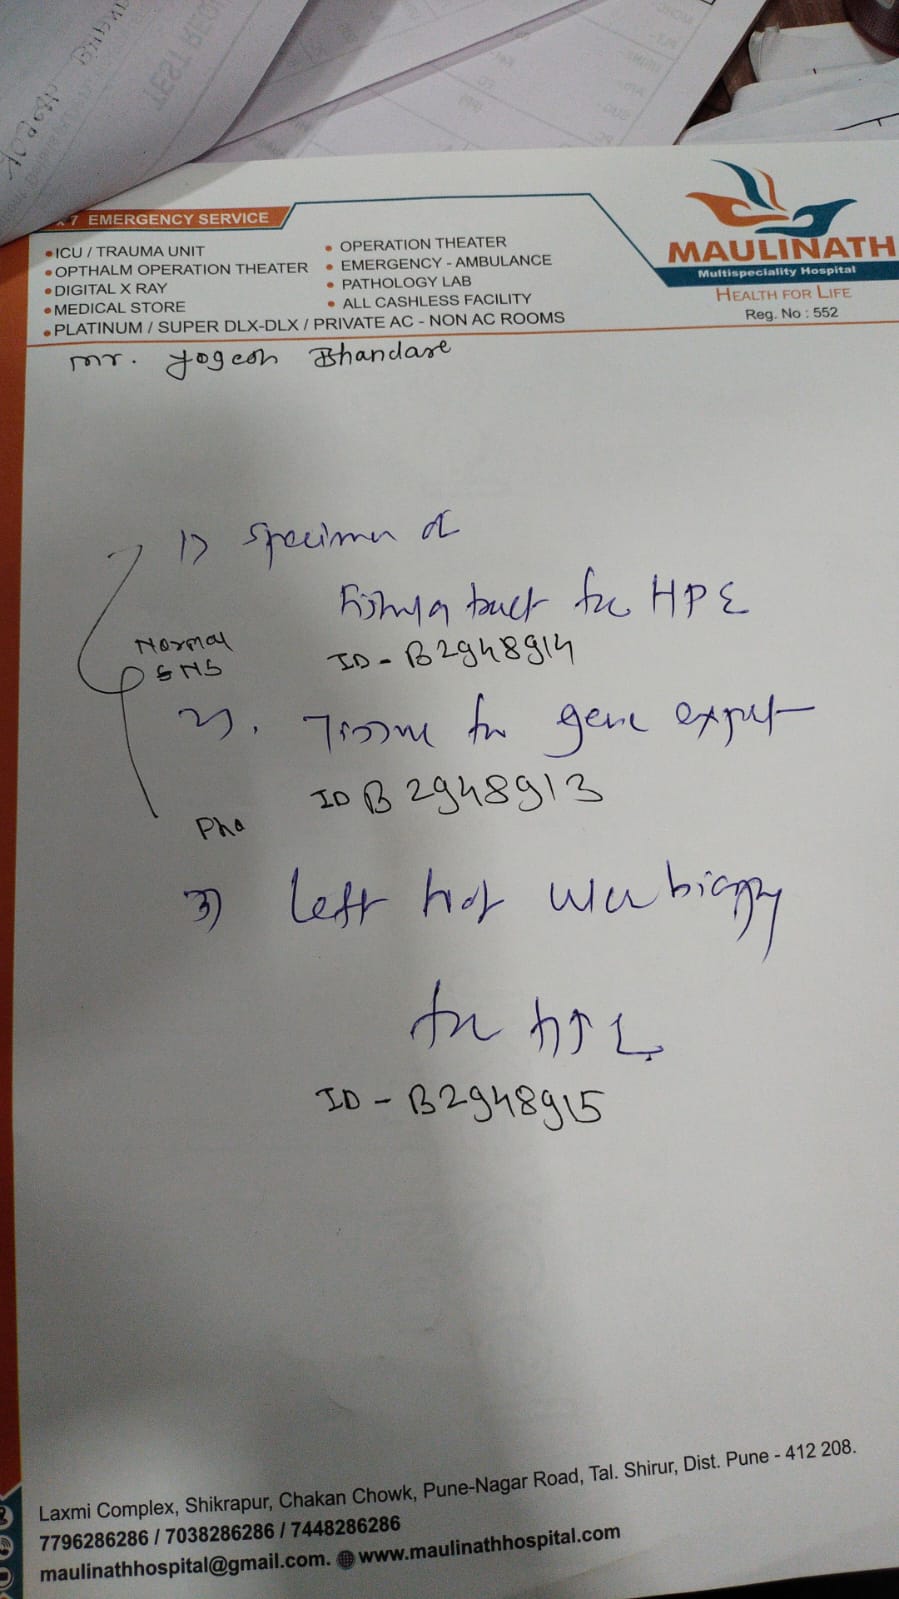 x7 EMERGENCY SERVICE
• ICU / TRAUMA UNIT
• OPTHALM OPERATION THEATER
• DIGITAL X RAY
• MEDICAL STORE
• OPERATION THEATER
• EMERGENCY - AMBULANCE
• PATHOLOGY LAB
• ALL CASHLESS FACILITY
• PLATINUM / SUPER DLX-DLX / PRIVATE AC - NON AC ROOMS
MAULINATH
Multispeciality Hospital
HEALTH FOR LIFE
Reg. No : 552
mr. Yogesh Bhandare
1) specimen of
Fistula tract for HPE
Normal
ID - B2948914
2). Tissue for gene expert
ID B 2948913
3) Left biopsy
for HPE
ID - B2948915
Laxmi Complex, Shikrapur, Chakan Chowk, Pune-Nagar Road, Tal. Shirur, Dist. Pune - 412 208.
7796286286 / 7038286286 / 7448286286
maulinathhospital@gmail.com. www.maulinathhospital.com